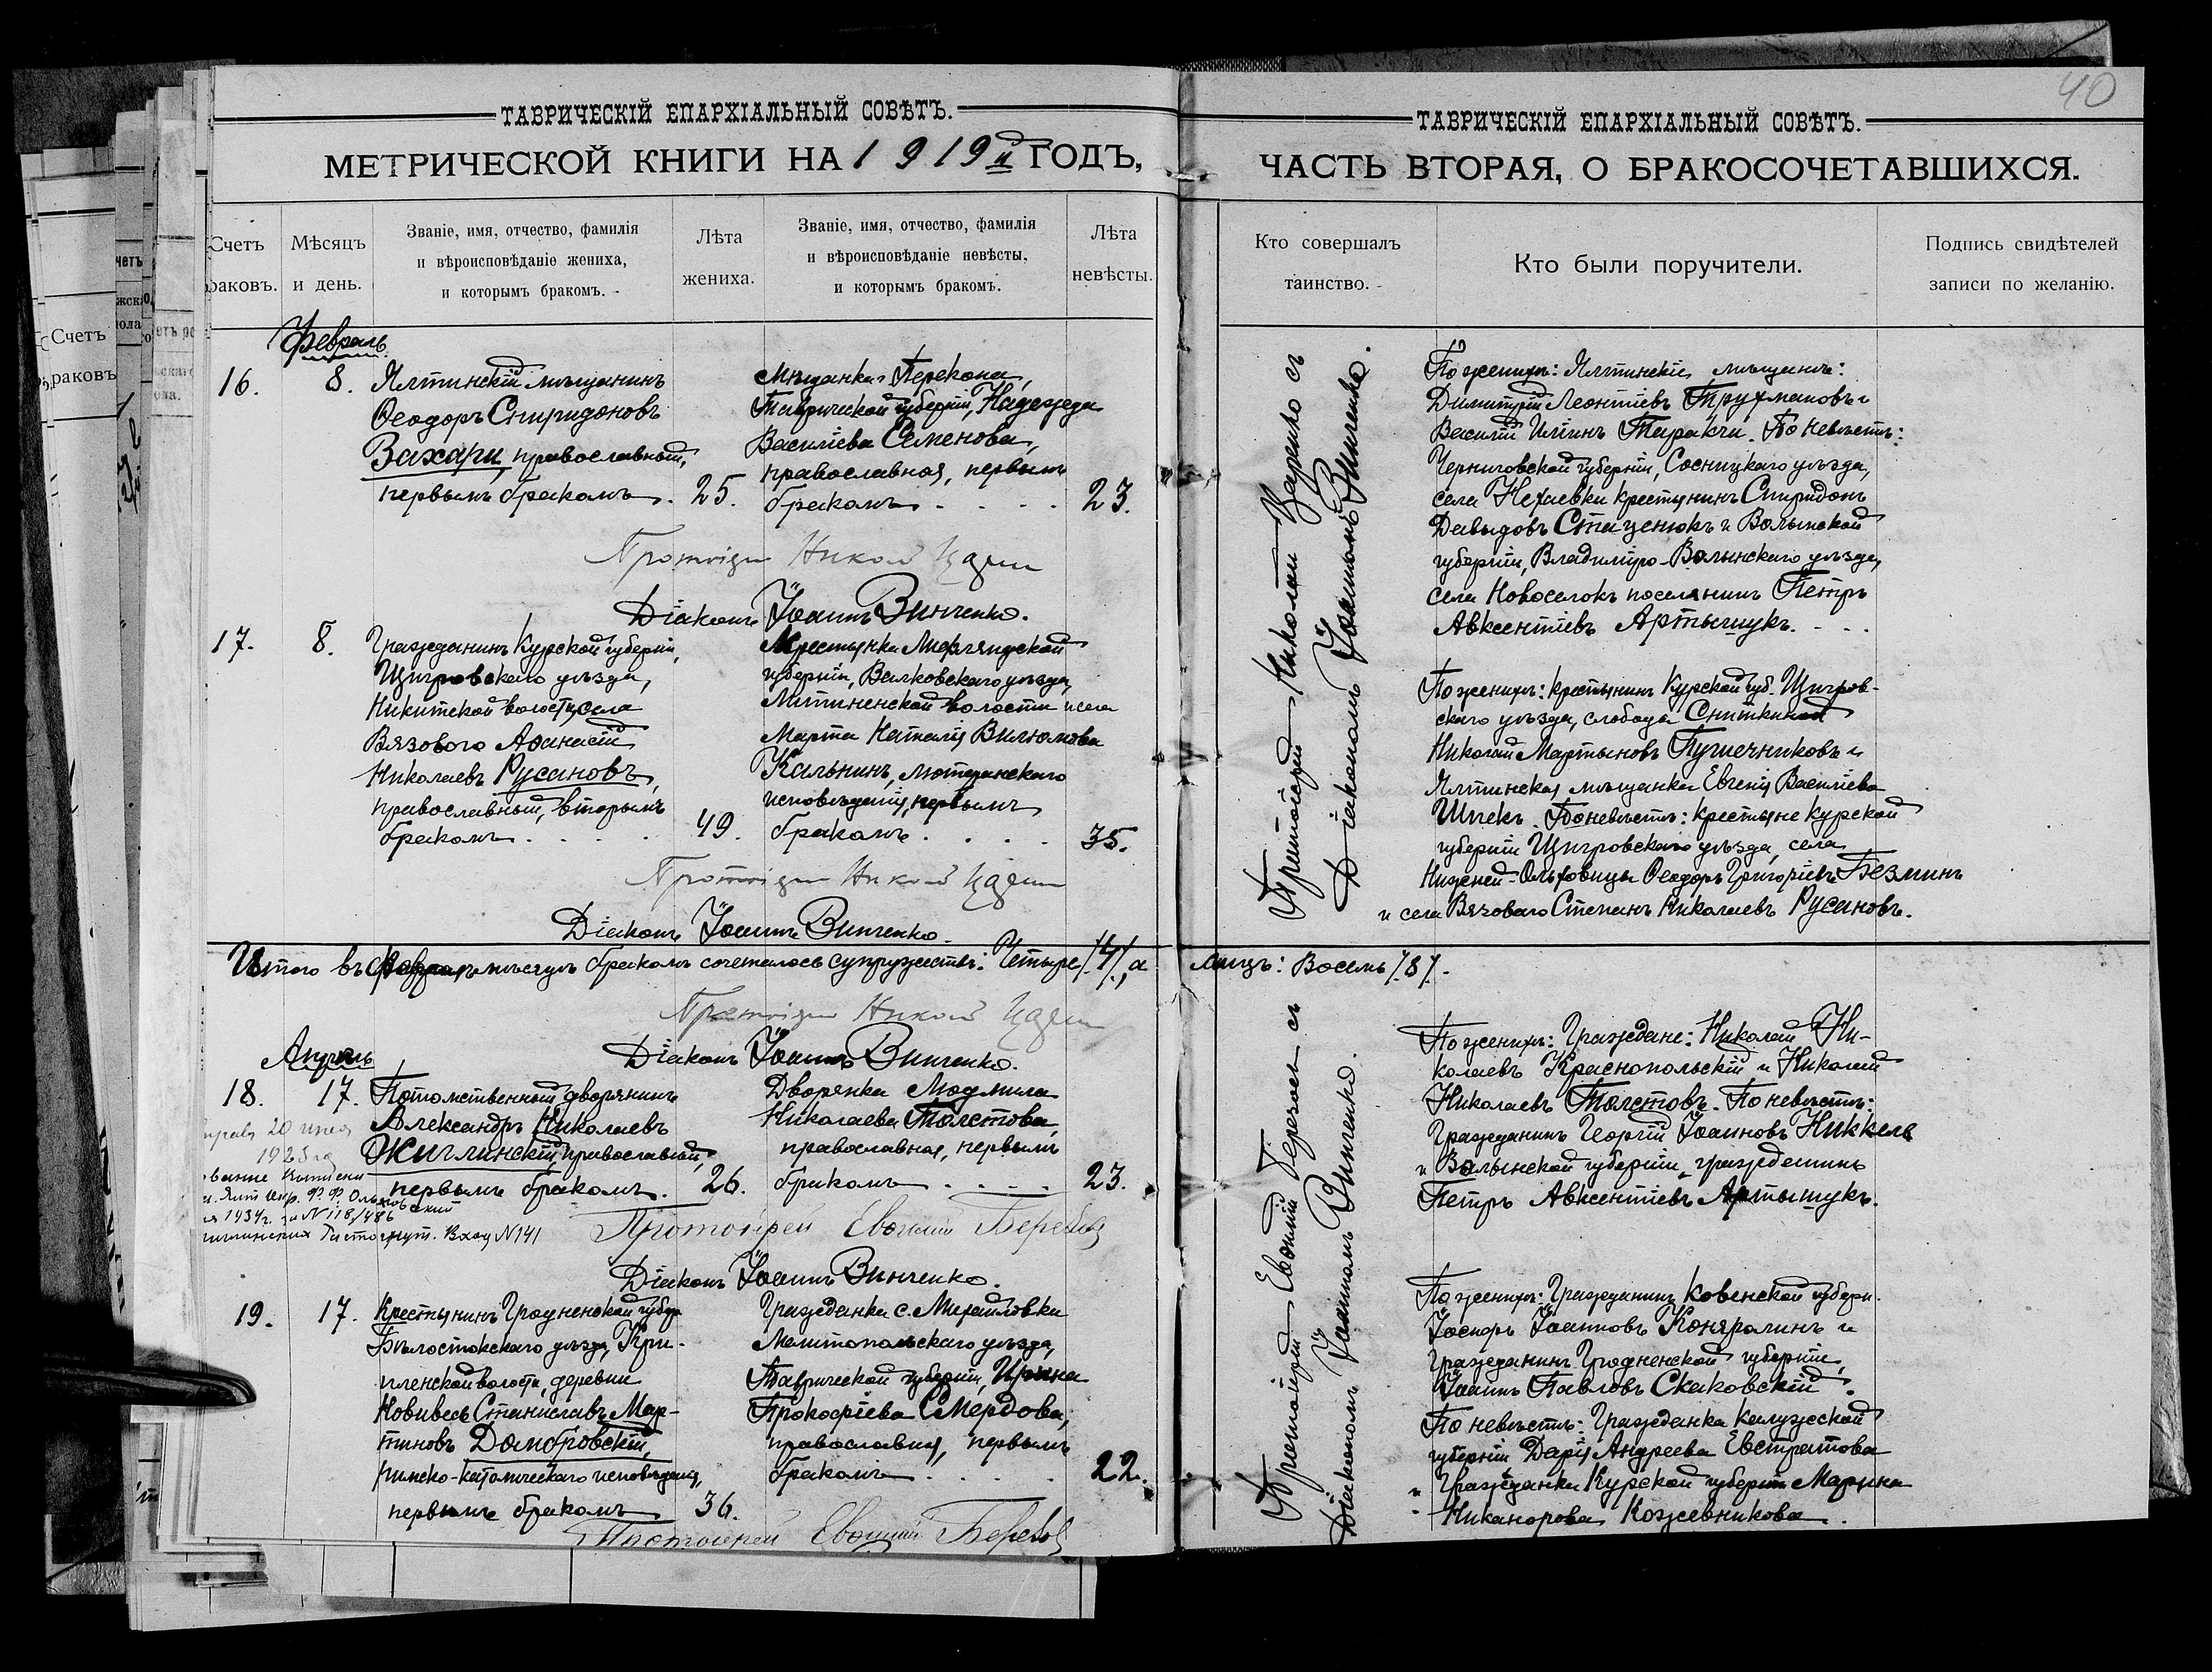 ТАВРИЧЕСКІЙ ЕПАРХІАЛЬНЫЙ СОВѢТЪ.
МЕТРИЧЕСКОЙ КНИГИ НА 1919й ГОДЪ,
Счетъ
раковъ.
Мѣсяцъ
и день.
Званіе, имя, отчество, фамилія
и вѣроисповѣданіе жениха,
и которымъ бракомъ.
Лѣта
жениха.
Званіе, имя, отчество, фамилія
и вѣроисповѣданіе невѣсты,
и которымъ бракомъ.
Лѣта
невѣсты.
Февраль
16.
8.
Ялтинскій мѣщанинъ
Ѳеодоръ Спиридоновъ
Захари, православный,
первымъ бракомъ.
25.
Мѣщанка г. Перекопа,
Таврической губерніи, Надежда
Василіева Семенова,
православная, первымъ
бракомъ....
23.
Протоіерей Николай Царенко
Діаконъ Іоаннъ Винченко.
17.
8.
Гражданинъ Курской губерніи,
Щигровскаго уѣзда,
Никитской волости, села
Вязоваго Аѳанасій
Николаевъ Русановъ,
православный, вторымъ
бракомъ...
49.
Крестьянка Лифляндской
губерніи, Валковскаго уѣзда,
волости
Марта Наталія Вильомова
Кальнинъ, лютеранскаго
исповѣданія, первымъ
бракомъ...
35.
Протоіерей Николай Царенко
Діаконъ Іоаннъ Винченко.
Итого въ Февралѣ мѣсяцѣ бракомъ сочеталось супружествъ: Четыре /4/, а
Апрѣль
18.
17.
Потомственный дворянинъ
Александръ Николаевъ
Жиглинскій, православный,
первымъ бракомъ.
26.
Дворянка Людмила
Николаева Толстова,
православная, первымъ
бракомъ....
23.
20 июля
1923 го
1934г. за N 118/486
Вход N 141
Протоіерей Евѳимій Березовъ
Протоіерей Николай Царенко
Діаконъ Іоаннъ Винченко.
Діаконъ Іоаннъ Винченко.
19.
17.
Крестьянинъ Гродненской губер.
Бѣлостокскаго уѣзда, Кри-
пленской волости, деревни
Новивесь Станиславъ Мар-
тиновъ Домбровскій,
римско-католическаго исповѣданія,
первымъ бракомъ
36.
Гражданка с. Михайловки
Мелитопольскаго уѣзда,
Таврической губерніи, Ирина
Прокофіева Смердова,
православная, первымъ
бракомъ....
22.
Протоіерей Евѳимій Березовъ
40
ТАВРИЧЕСКІЙ ЕПАРХІАЛЬНЫЙ СОВѢТЪ.
ЧАСТЬ ВТОРАЯ, О БРАКОСОЧЕТАВШИХСЯ.
Кто совершалъ
таинство.
Кто были поручители.
Подпись свидѣтелей
записи по желанію.
Протоіерей Николай Царенко съ
Діакономъ Іоанномъ Винченко.
По женихѣ: Ялтинскіе мѣщане:
Димитрій Леонтіевъ Труфмановъ и
Василій Ильинъ Таракчи. По невѣстѣ:
Черниговской губерніи, Сосницкаго уѣзда,
села Нехаевки крестьянинъ Спиридонъ
Давыдовъ Стаценюкъ и Волынской
губерніи, Владиміро-Волынскаго уѣзда,
села Новоселокъ поселянинъ Петръ
Авксентіевъ Артышукъ...
По женихѣ: крестьянинъ Курской губ. Щигров-
скаго уѣзда, слободы Сниткиной
Николай Мартыновъ Пушечниковъ и
Ялтинская мѣщанка Евгенія Василіева
Шпекъ. По невѣстѣ: крестьяне Курской
губерніи Щигровскаго уѣзда, села
Нижней-Ольховицы Ѳеодоръ Григоріевъ Безминъ
и села Вязоваго Степанъ Николаевъ Русановъ.
лицъ: Восемь /8/.
Протоіерей Евѳимій Березовъ съ
Діакономъ Іоанномъ Винченко.
По женихѣ: Граждане: Николай Ни-
колаевъ Краснопольскій и Николай
Николаевъ Толстовъ. По невѣстѣ:
Гражданинъ Георгій Іоанновъ Никкель
и Волынской губерніи, гражданинъ
Петръ Авксентіевъ Артышукъ.
По женихѣ: Гражданинъ Ковенской губерн.
Іосифъ Іоанновъ и
гражданинъ Гродненской губерніи,
Іоаннъ Павловъ Скаковскій.
По невѣстѣ: Гражданка Калужской
губерніи Дарія Андреева Евстратова
и Гражданка Курской губерніи Марина
Никанорова Кожевникова.